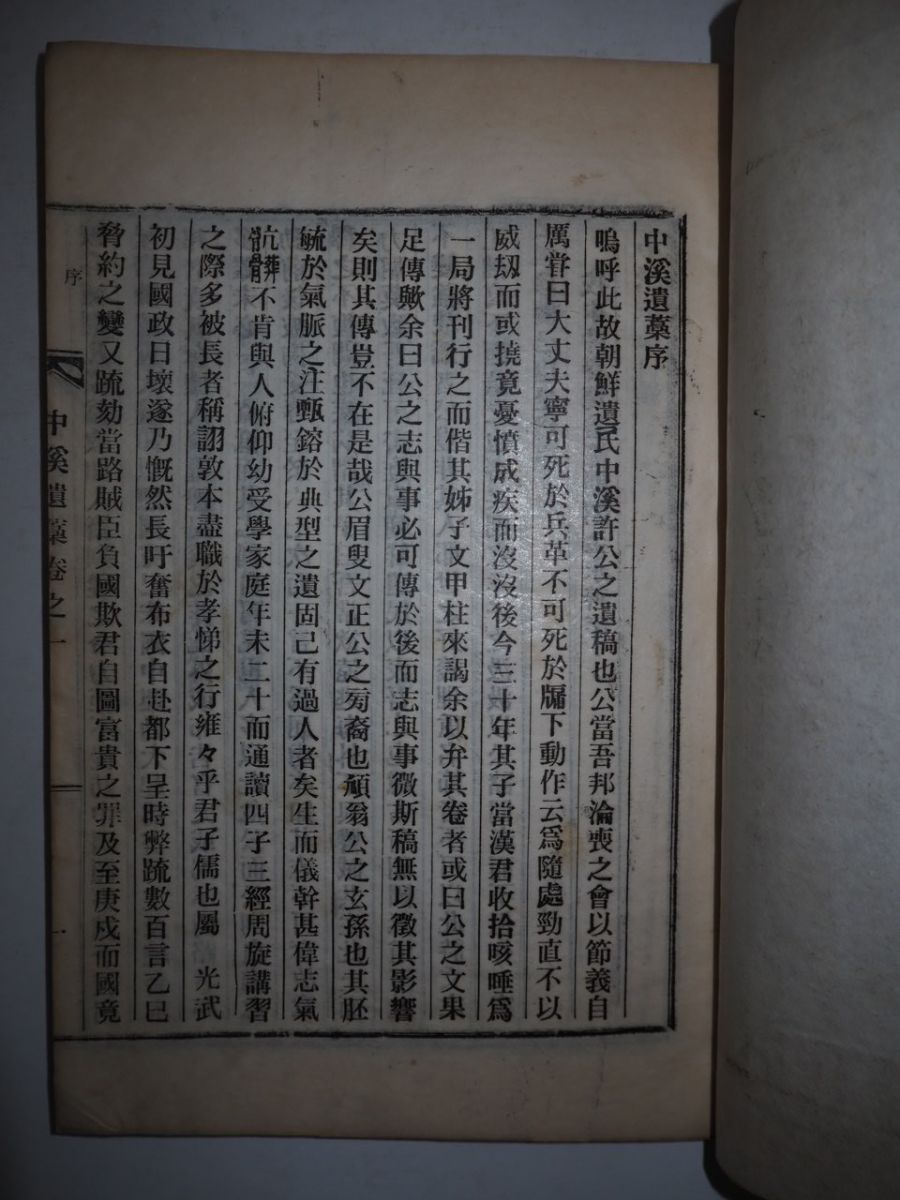 中溪遺藁序
嗚呼此故朝鮮遺民中溪許公之遺稿也公當吾邦淪喪之會以節義自
厲甞曰大丈夫寧可死於兵革不可死於牖下動作云爲隨處勁直不以
威刼而或撓竟憂憤成疾而沒沒後今三十年其子當漢君收拾咳唾爲
一局將刊行之而偕其姊子文甲柱來謁余以弁其卷者或曰公之文果
足傳歟余曰公之志與事必可傳於後而志與事微斯稿無以徵其影響
矣則其傳豈不在是哉公眉叟文正公之旁裔也頎翁公之玄孫也其胚
毓於氣脈之注甄鎔於典型之遺固己有過人者矣生而儀幹甚偉志氣
骯髒不肯與人俯仰幼受學家庭年未二十而通讀四子三經周旋講習
之際多被長者稱詡敦本盡職於孝悌之行雍々乎君子儒也屬　光武
初見國政日壞遂乃慨然長吁奮布衣自赴都下呈時弊疏數百言乙巳
脅約之變又疏劾當路賊臣負國欺君自圖富貴之罪及至庚戍而國竟
序
中溪遺藁卷之一
一